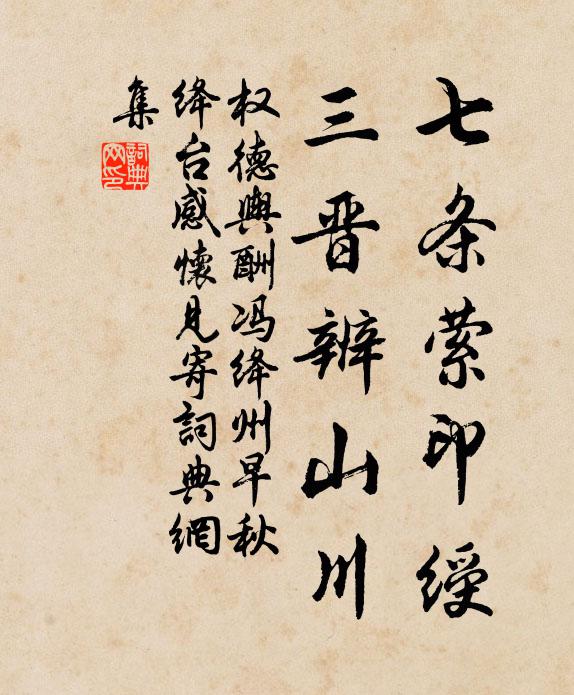 七条萦印绶
三晋辨山川
权德舆酬冯绛州早秋
绛台感懷見寄詞典網
集
詞典
网印